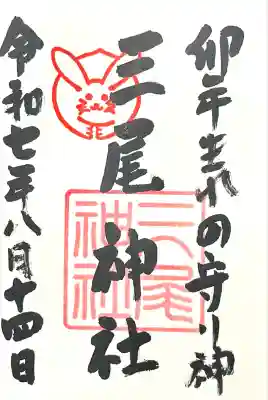 卯年生れの守り神
三尾神社
三尾
神社
令和七年八月十四日